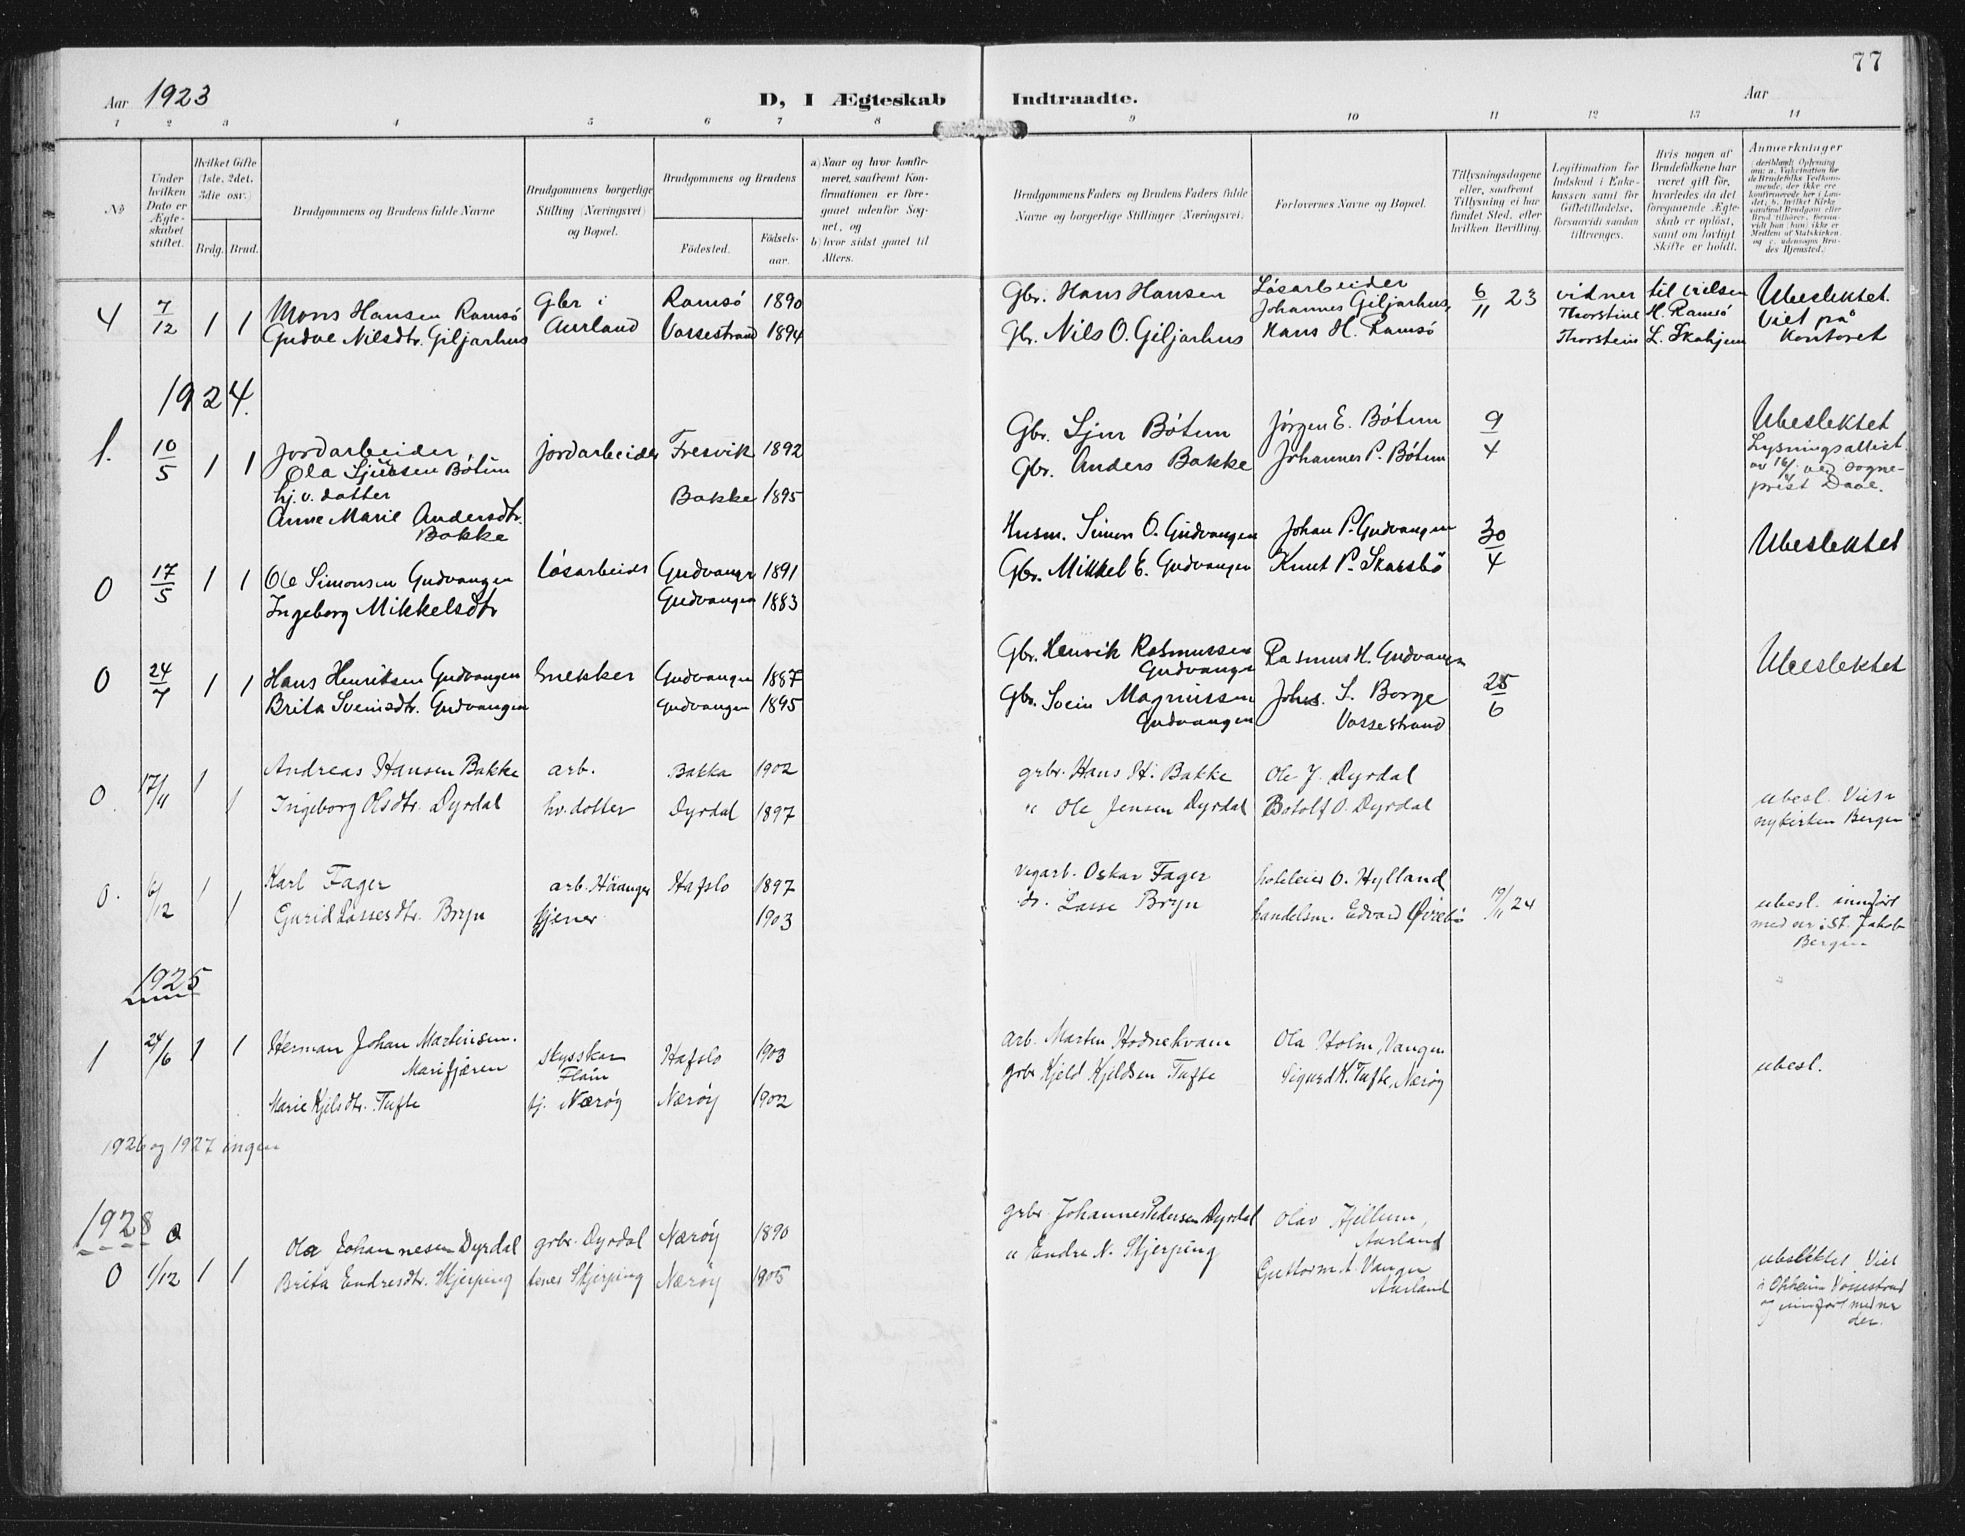 77
Aar 1923
D, I Ægteskab Indtraadte.
Aar
1 2 3 4 5 6 7 8 9 10 11 12 13 14
No
Under hvilken Dato er Ægteskabet stiftet.
Hvilket Gifte (1ste, 2det, 3die osv.)
Brdg. Brud.
Brudgommens og Brudens fulde Navne
Brudgommens borgerlige Stilling (Næringsvei) og Bopæl.
Brudgommens og Brudens
Fødested.
Fødselsaar.
a) Naar og hvor konfirmeret, saafremt Konfirmationen er foregaaet udenfor Sognet, og
b) hvor sidst gaaet til Alters.
Brudgommens Faders og Brudens Faders fulde Navne og borgerlige Stillinger (Næringsvei).
Forlovernes Navne og Bopæl.
Tillysningsdagene eller, saafremt Tillysning ei har fundet Sted, efter hvilken Bevilling.
Legitimation for Indskud i Enkekassen samt for Giftetilladelse, forsaavidt saadan tiltrænges.
Hvis nogen af Brudefolkene har været gift før, hvorledes da det foregaaende Ægteskab er opløst, samt om lovligt Skifte er holdt.
Anmærkninger
4 7/12 1 1 Mons Hansen Ramsö Gbr i Ramsö 1890 Gbr. Hans Hansen Løsarbeider 6/11 23 vidner til vielsen Ubeslektet.
Gudve Nilsdtr. Giljarhus Aurland Vossestrand 1894 Gbr. Nils O. Giljarhus Johannes Giljarhus, Thorstine H. Ramsö Viet på
Hans H. Ramsö Thorstein L. Skahjem Kontoret
1924.
1. 10/5 1 1 Jordarbeider Jordarbeider Fresvik 1892 Gbr. Sjur Bøtun Jørgen E. Bøtun 9/4 Ubeslektet
Ola Sjursen Bøtun Gbr. Anders Bakke Johannes P. Bøtun Lysningsattest
hj. v. datter Bakke 1895 av 16/4 ved sogne-
Anne Marie Andersdtr. prest Daae.
Bakke
0 17/5 1 1 Ole Simonsen Gudvangen Løsarbeider Gudvangen 1891 Husm. Simon O. Gudvangen Johan P. Gudvangen 30/4 Ubeslektet
Ingeborg Mikkelsdtr Gudvangen 1883 Gbr. Mikkel E. Gudvangen Knut P. Skarsbö
0 24/7 1 1 Hans Henriksen Gudvangen Snekker Gudvangen 1887 Gbr. Henrik Rasmussen Rasmus H. Gudvangen Ubeslektet
Gudvangen
Brita Sveinsdtr. Gudvangen Gudvangen 1895 Gbr. Svein Magnussen Johs. S. Borge 25/6
Gudvangen Vossestrand
0. 17/11 1 Andreas Hansen Bakke arb. Bakka 1902 grbr. Hans H. Bakke Ole J. Dyrdal
1 Ingeborg Olsdtr. Dyrdal hv. dotter Dyrdal 1897 " Ole Jensen Dyrdal Botolf O. Dyrdal ubesl. Viet i
nykirken Bergen
0. 6/12 1 Karl Fager arb. Höanger Hafslo 1897 vegarb. Oskar Fager hoteleier O. Hylland
1 Gurid Lassesdtr. Bryn tjener 1903 do. Lasse Bryn handelsm. Edvard 19/11 24 ubesl. innført
med nr i St. Jakob
Bergen
1925
1 24/6 1 1 Herman Johan Martinsen. skysskar Hafslo 1903 arb. Marten Hodnekvam Ola Holm, Vangen
Marifjæren Flåm grbr Kjeld Kjeldsen Tufte Sigurd K. Tufte, Nærøy ubesl.
Marie Kjelsdtr. Tufte tj. Nærøy Nærøy 1902
1926 og 1927 ingen
1928 0
Ola Johannesen Dyrdal grbr. Dyrdal Nærøy 1890 grbr. Johannes Pedersen Dyrdal Olav Hjellum,
Aurland
0 1/12 1 1 Brita Endresdtr. Skjerping Skjerping Nærøy 1905 " Endre N. Skjerping Guttorm A. Vangen ubeslektet. Viet
Aurland i Oppheim Vossestrand
og innført med nr
der.